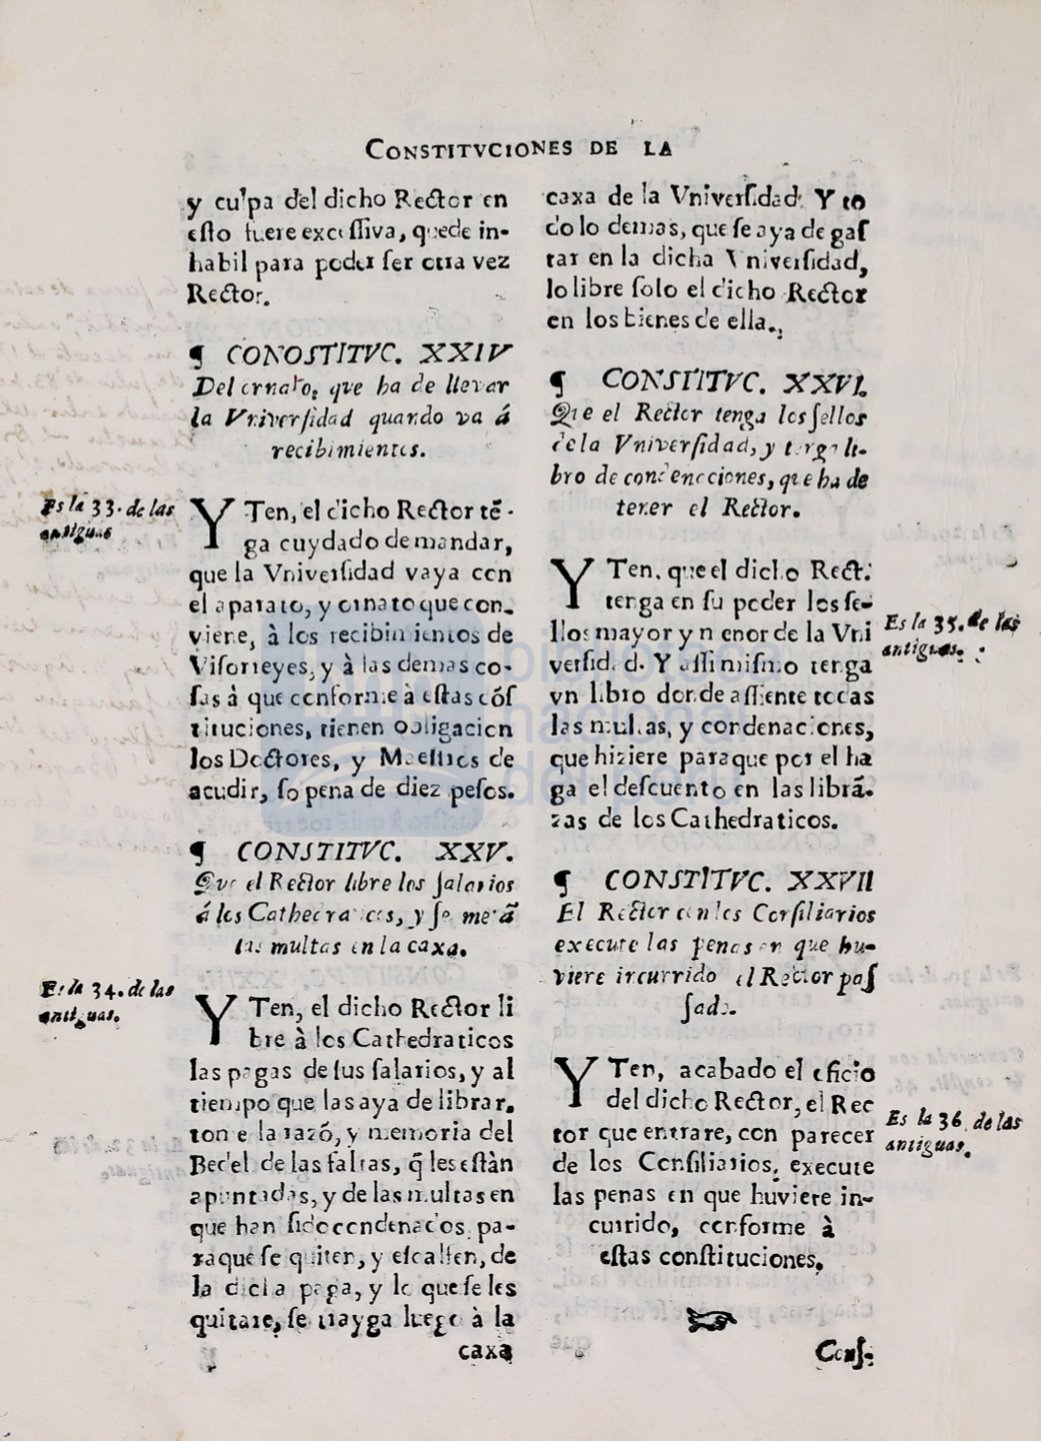 CONSTITVCIONES DE LA
y culpa del dicho Rector en
esto fuere excessiva, quede in-
habil para poder ser otra vez
Rector.
¶ CONOSTITVC. XXIV
Del ornato, que ha de llevar
la Vniversidad quando va á
recibimientos.
Es la 33. de las
antiguas
YTen, el dicho Rector tē-
ga cuydado de mandar,
que la Vniversidad vaya con
el aparato, y ornato que con-
viene, à los recibimientos de
Visorreyes, y à las demas co-
sas á que conforme à estas cós
tituciones, tienen obligacion
los Doctores, y Maestros de
acudir, so pena de diez pesos.
¶ CONSTITVC. XXV.
Que el Rector libre los salarios
á los Cathedraticos, y se metā
las multas en la caxa.
Es la 34. de las
antiguas.
YTen, el dicho Rector li
bre à los Cathedraticos
las pagas de sus salarios, y al
tiempo que las aya de librar,
tome la razó, y memoria del
Bedel de las faltas, q̃ les estàn
apuntadas, y de las multas en
que han sido condenados, pa-
raque se quiten, y escalfen, de
la dicha paga, y lo que se les
quitare, se trayga luego à la
caxa
caxa de la Vniversidad. Y to
do lo demas, que se aya de gas
tar en la dicha Vniversidad,
lo libre solo el dicho Rector
en los bienes de ella.
¶ CONSTITVC. XXVI.
Que el Rector tenga los sellos
de la Vniversidad, y tenga li-
bro de condenaciones, que ha de
tener el Rector.
YTen, que el dicho Rect.
tenga en su poder los se-
llos mayor y menor de la Vni
versidad. Y assimismo tenga
vn libro donde assiente todas
las multas, y condenaciones,
que hiziere paraque por el ha
ga el descuento en las librā-
zas de los Cathedraticos.
Es la 35. de las
antiguas.
¶ CONSTITVC. XXVII
El Rector con los Consiliarios
execute las penas en que hu-
viere incurrido el Rector pas
sado.
YTen, acabado el oficio
del dicho Rector, el Rec
tor que entrare, con parecer
de los Consiliarios, execute
las penas en que huviere in-
currido, conforme à
estas constituciones.
Es la 36. de las
antiguas.
Cons-
biblioteca
nacional
del perú